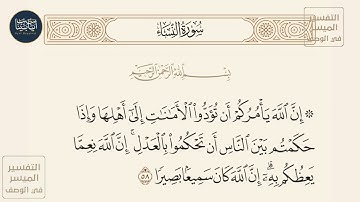 سُورَةُ النِّسَاءِ
التفسير
الميسر
في الوصف
بِسْمِ اللَّهِ الرَّحْمَٰنِ الرَّحِيمِ
۞ إِنَّ اللَّهَ يَأْمُرُكُمْ أَن تُؤَدُّوا الْأَمَانَاتِ إِلَىٰ أَهْلِهَا وَإِذَا
حَكَمْتُم بَيْنَ النَّاسِ أَن تَحْكُمُوا بِالْعَدْلِ ۚ إِنَّ اللَّهَ نِعِمَّا
يَعِظُكُم بِهِ ۗ إِنَّ اللَّهَ كَانَ سَمِيعًا بَصِيرًا ٥٨
التفسير
الميسر
في الوصف